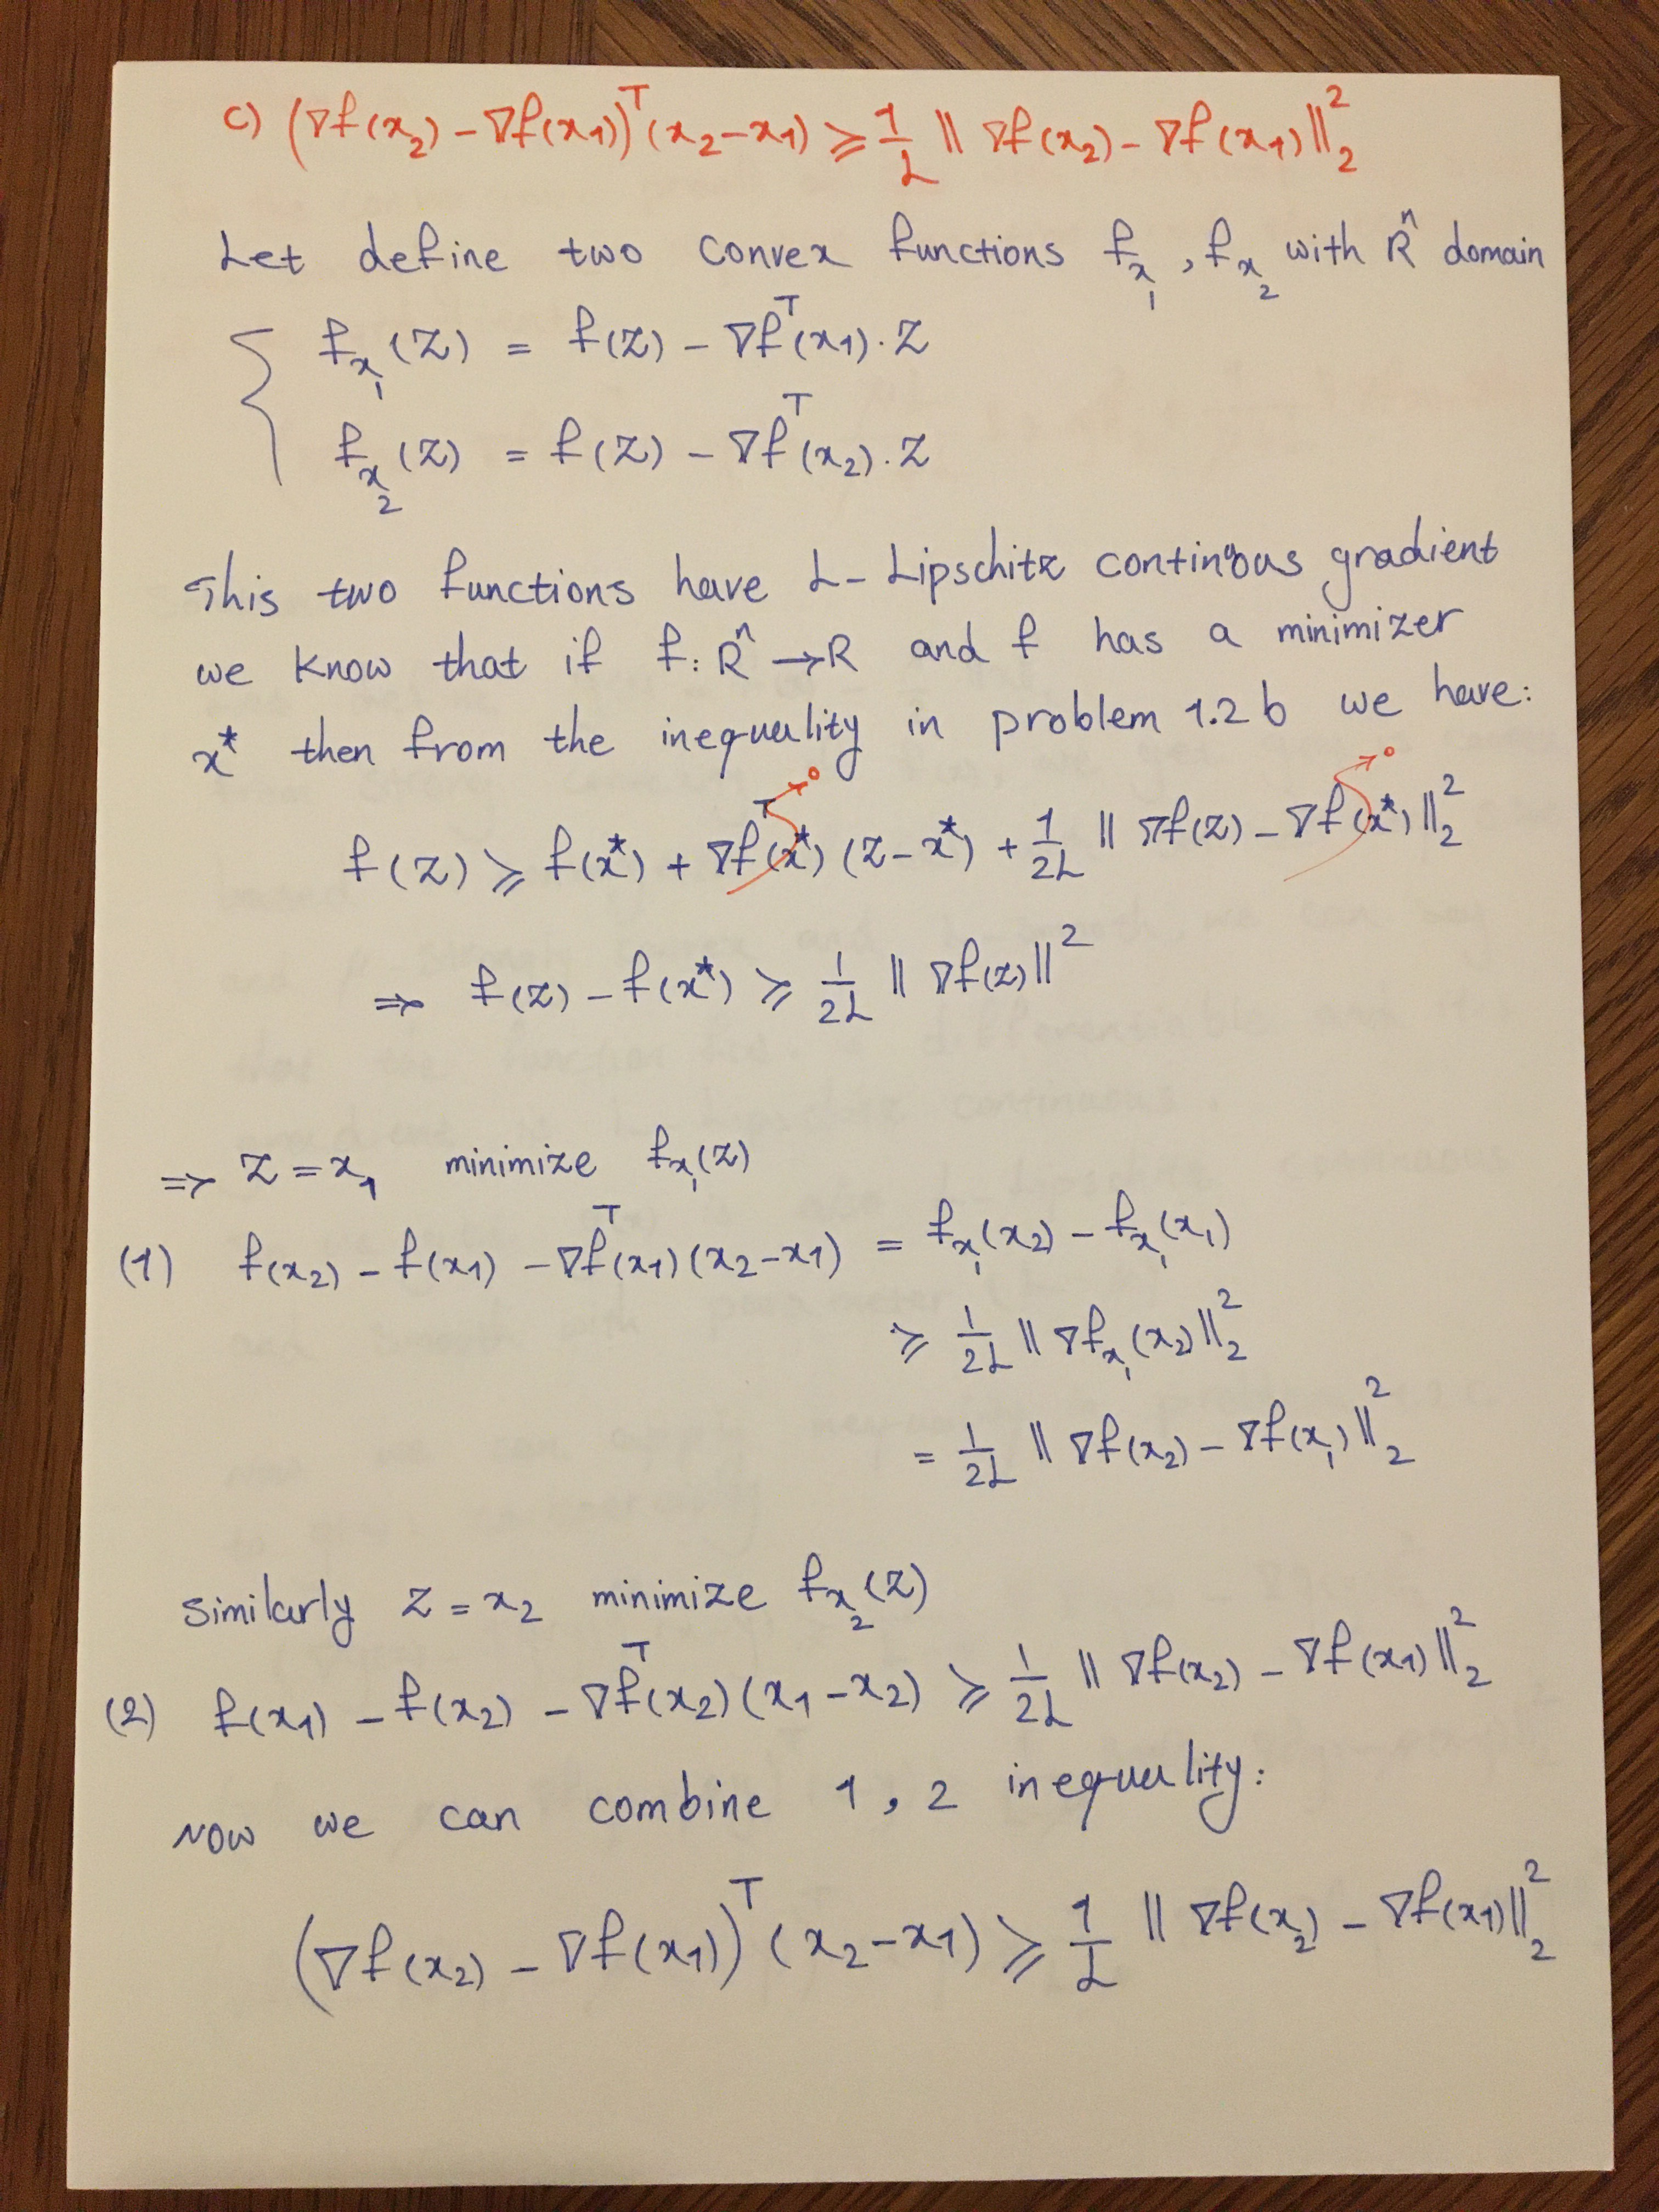 c) (∇f(x₂) – ∇f(x₁))ᵀ(x₂–x₁) ⩾ 1/L ‖ ∇f(x₂) – ∇f(x₁)‖₂²
Let define two convex functions f_x₁ , f_x₂ with Rⁿ domain
{ f_x₁(z) = f(z) – ∇fᵀ(x₁).z
f_x₂(z) = f(z) – ∇fᵀ(x₂).z
This two functions have L-Lipschitz continuous gradient
we know that if f: Rⁿ → R and f has a minimizer
x* then from the inequality in problem 1.2 b we have:
f(z) ⩾ f(x*) + ∇fᵀ(x*) (z – x*) + 1/2L ‖ ∇f(z) – ∇f(x*)‖₂² → 0 → 0
⇒ f(z) – f(x*) ⩾ 1/2L ‖ ∇f(z)‖²
⇒ z = x₁ minimize f_x₁(z)
(1) f(x₂) – f(x₁) – ∇fᵀ(x₁)(x₂–x₁) = f_x₁(x₂) – f_x₁(x₁)
⩾ 1/2L ‖ ∇f_x₁(x₂)‖₂²
= 1/2L ‖ ∇f(x₂) – ∇f(x₁)‖₂²
Similarly z = x₂ minimize f_x₂(z)
(2) f(x₁) – f(x₂) – ∇fᵀ(x₂)(x₁–x₂) ⩾ 1/2L ‖ ∇f(x₂) – ∇f(x₁)‖₂²
Now we can combine 1, 2 inequality:
(∇f(x₂) – ∇f(x₁))ᵀ (x₂–x₁) ⩾ 1/L ‖ ∇f(x₂) – ∇f(x₁)‖₂²